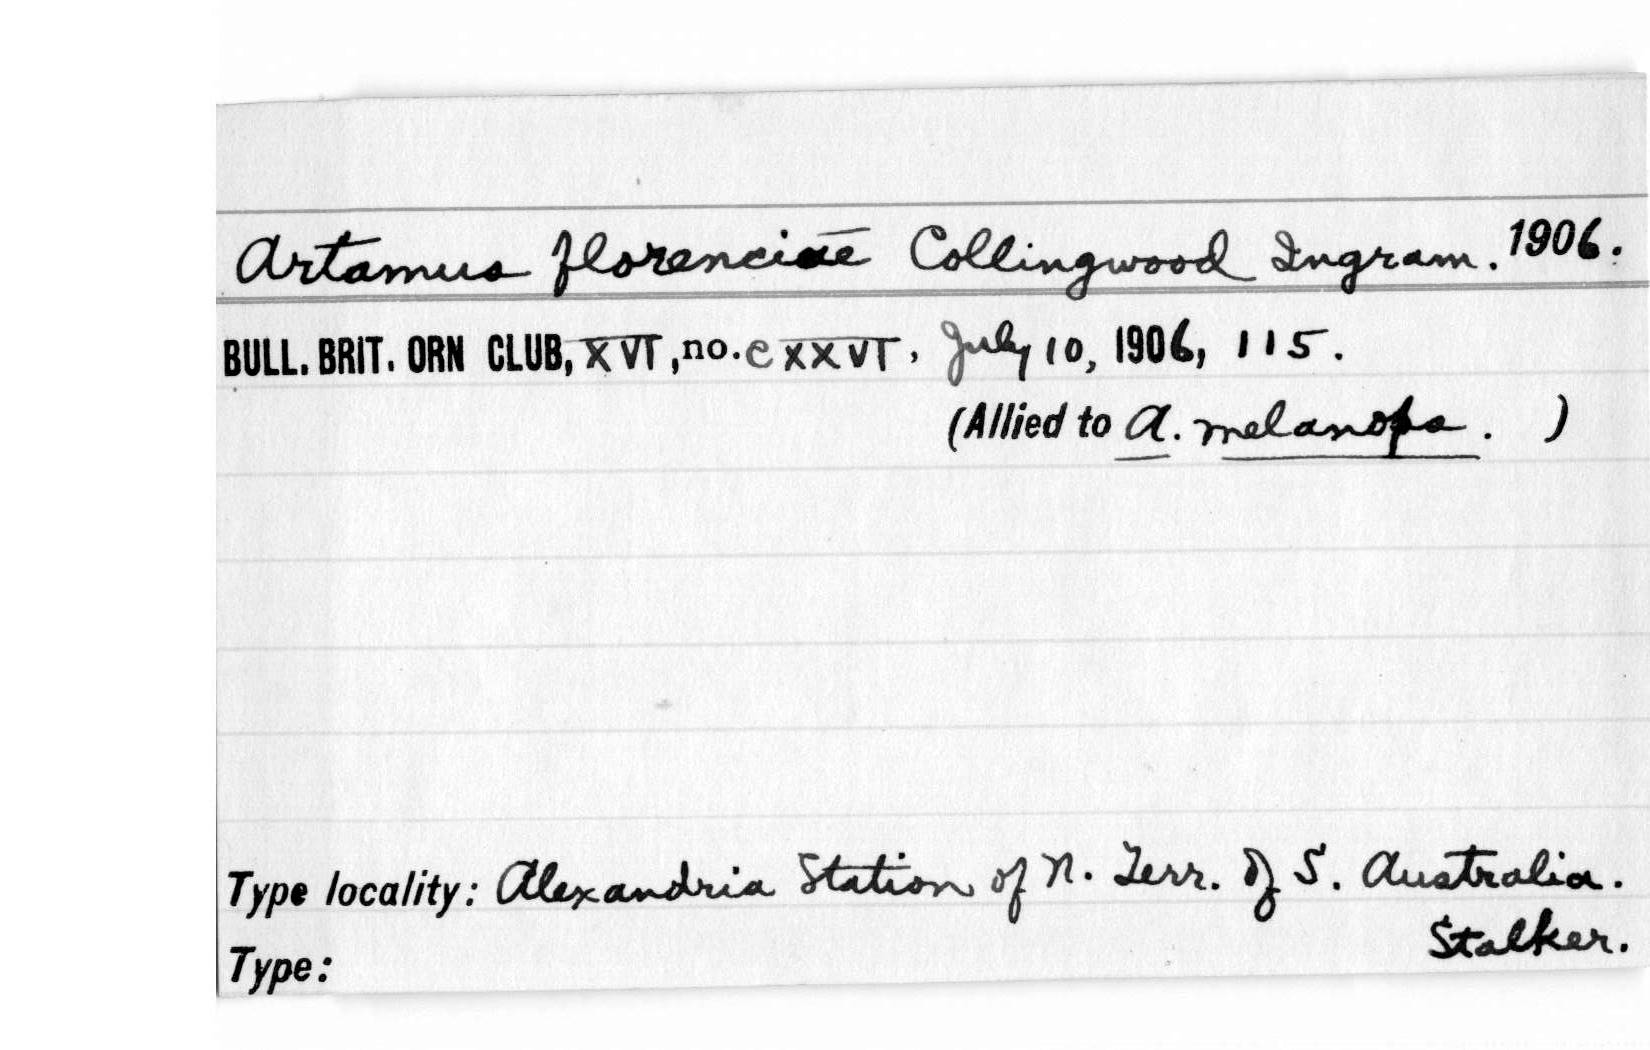 Artamus florenciae Collingwood Ingram. 1906.
BULL. BRIT. ORN CLUB, XVI, no. CXXVI, July 10, 1906, 115.
(Allied to A. melanops. )
Type locality: Alexandria Station of N. Terr. of S. Australia.
Stalker.
Type: